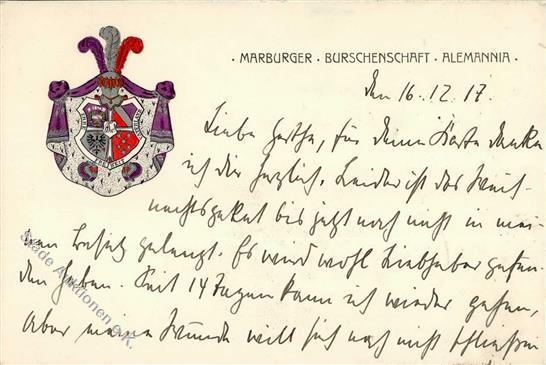 · MARBURGER · BURSCHENSCHAFT · ALEMANNIA ·
Den 16.12.17.
Liebe Hertha, für Deine Karte danke
ich Dir herzlich. Leider ist das Weih-
nachtspaket bis jetzt noch nicht in mei-
nen Besitz gelangt. Es wird wohl Liebhaber gefun-
den haben. Seit 14 Tagen kann ich wieder gehen,
aber meine Wunde will sich noch nicht schließen
Stade Auktionen e.K.